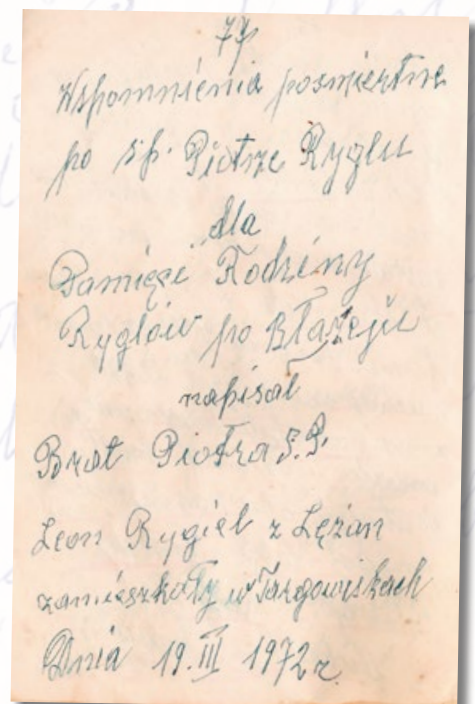 Wspomnienia pośmiertne
po śp. Piotrze Ryglu
dla
Pamięci Rodziny
Ryglów po Błażeju
napisał
Brat Piotra Ś.P.
Leon Rygiel z Lężan
zamieszkały w Targowiskach
Dnia 19.III 1972 r.